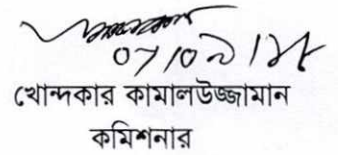 ০৭/০৯/১৮
খোন্দকার কামালউজ্জামান
কমিশনার